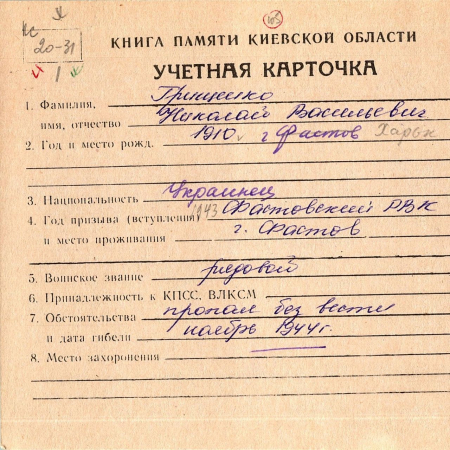 105
20-31
КНИГА ПАМЯТИ КИЕВСКОЙ ОБЛАСТИ
УЧЕТНАЯ КАРТОЧКА
1. Фамилия, Грищенко
имя, отчество Николай Васильевич
2. Год и место рожд. 1910 г Фастов Харьк
3. Национальность Украинец
4. Год призыва (вступления) 1943 Фастовский РВК
и место проживания г. Фастов
5. Воинское звание рядовой
6. Принадлежность к КПСС, ВЛКСМ
7. Обстоятельства пропал без вести
и дата гибели ноябрь 1944г.
8. Место захоронения